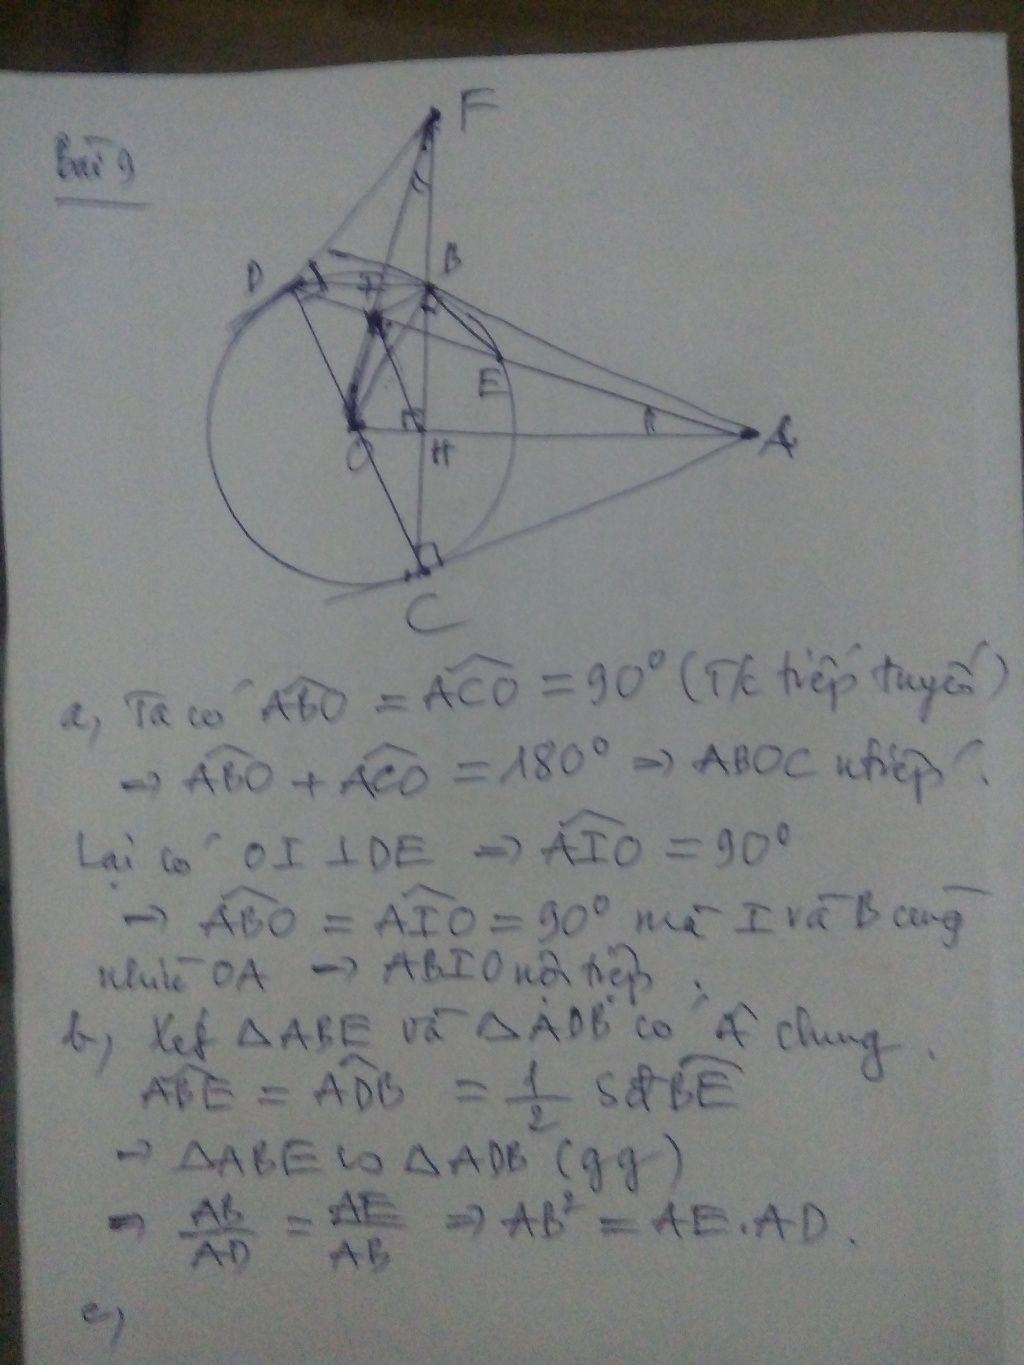 Bài 9
F
D
I
B
E
O
H
A
C
a, Ta có ABO = ACO = 90° (T/c tiếp tuyến)
→ ABO + ACO = 180° → ABOC ntiếp.
Lại có OI ⊥ DE → AIO = 90°
→ ABO = AIO = 90° mà I và B cùng
nhìn OA → ABIO nội tiếp.
b, Xét △ABE và △ADB có Â chung.
ABE = ADB = 1/2 sđ BE
→ △ABE ∽ △ADB (gg)
→ AB/AD = AE/AB → AB² = AE.AD.
c,